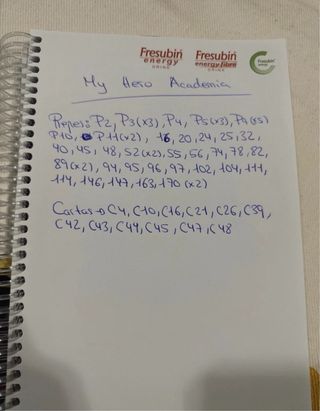 Fresubin
energy
DRINK
Fresubin
energy fibre
DRINK
Fresubin
My Hero Academia
P2, P3(x3), P4, P5(x3),
P10, P11(x2), 16, 20, 24, 25, 32,
40, 45, 48, 52(x2), 55, 56, 74, 78, 82,
89(x2), 94, 95, 96, 97, 102, 104, 111,
114, 146, 147, 163, 170 (x2)
Cartas → C4, C10, C16, C21, C26, C39,
C42, C43, C44, C45, C47, C48